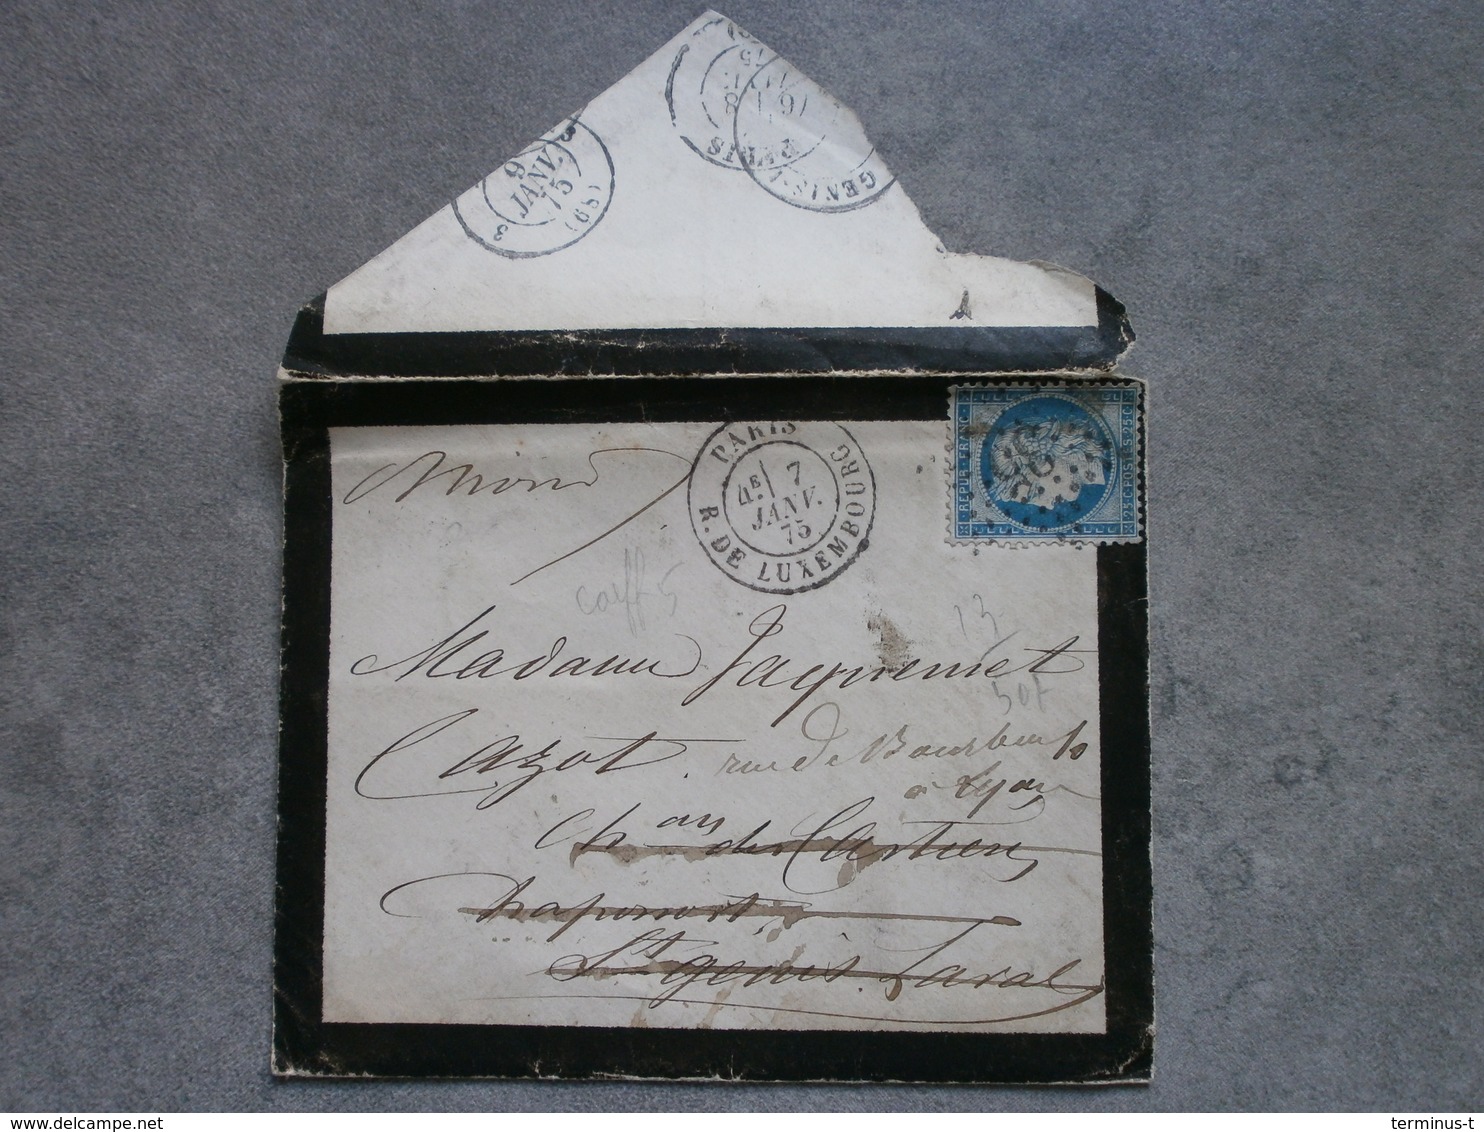 PARIS
GENIS-
9
JANV.
75
(68)
3
PARIS
4E 7
JANV.
75
R. DE LUXEMBOURG
REPUB. FRANC.
25 C. POSTES. 25 C.
coeff 5
13
50f
Madame Jaquemet
Cazot. rue de Bourbon 10
a Lyon
Chau des Cartieres
Chaponost
St genis Laval
delcampe.net
terminus-t